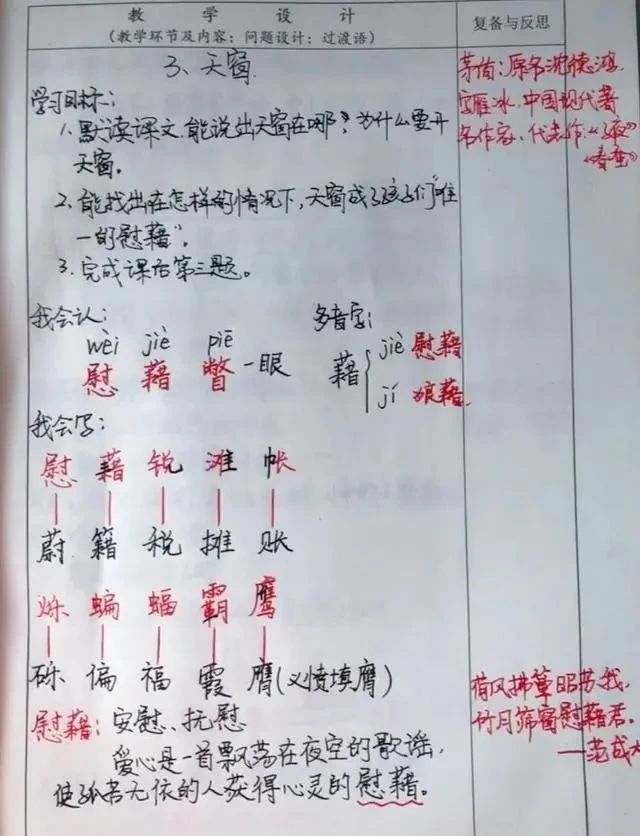 教 学 设 计
(教学环节及内容：问题设计：过渡语)
复备与反思
3、天窗
学习目标：
1. 默读课文，能说出天窗在哪？为什么要开
天窗。
2. 能找出在怎样的情况下，天窗成了孩子们“唯
一的慰藉”。
3. 完成课后第三题。
我会认：
wèi jiè piē
慰 藉 瞥一眼
多音字：
藉
jiè 慰藉
jí 狼藉
我会写：
慰 藉 锐 滩 帐
蔚 籍 税 摊 账
烁 蝙 蝠 霸 鹰
砾 偏 福 霞 膺(义愤填膺)
慰藉：安慰、抚慰
爱心是一首飘荡在夜空的歌谣，
使孤苦无依的人获得心灵的慰藉。
茅盾：原名沈德鸿，
字雁冰，中国现代著
名作家、代表作：《子夜》
《春蚕》
荷风拂簟昭苏我，
竹月筛窗慰藉君。
——范成大